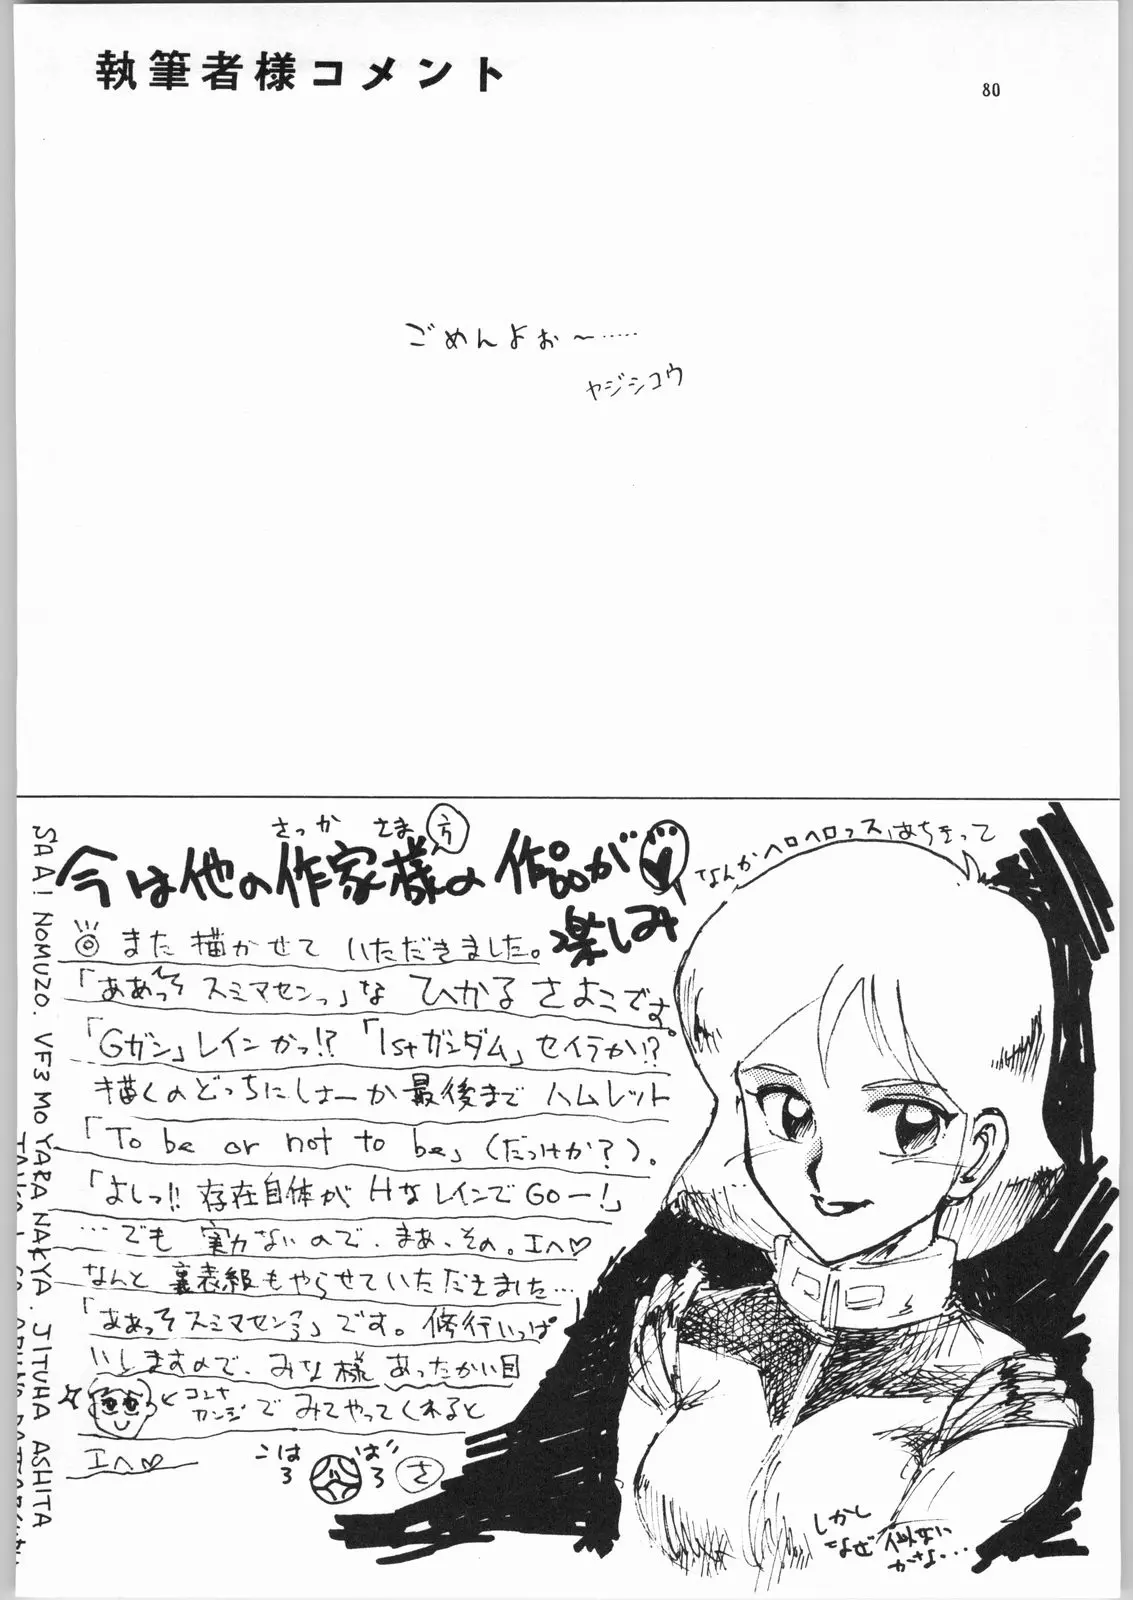 執筆者様コメント
80
ごめんよぉ〜……
ヤジシコウ
さっか さま 方
今は他の作家様の作品が
楽しみ
なんかヘロヘロっス はちきって
また描かせていただきました。
「ああっそスミマセンっ」な ひかるさよこです。
「Gガン」レインかっ!?「1stガンダム」セイラか!?
描くのどっちにしよーか最後までハムレット
「To be or not to be」(だっけか?)。
「よしっ!!存在自体がHなレインでGOー!」
…でも実力ないので、まあ、その。エヘ♡
なんと裏表紙もやらせていただきました…
「ああっそスミマセンっ」です。修行いっぱ
いしますので、みな様あったかい目
コンナ
カンジ
でみてやってくれると
エヘ♡
こはろ ばろ さ
しかし
なぜ似ない
かな…
SAA! NOMUZO. VF3 MO YARANAKYA. JITUHA ASHITA